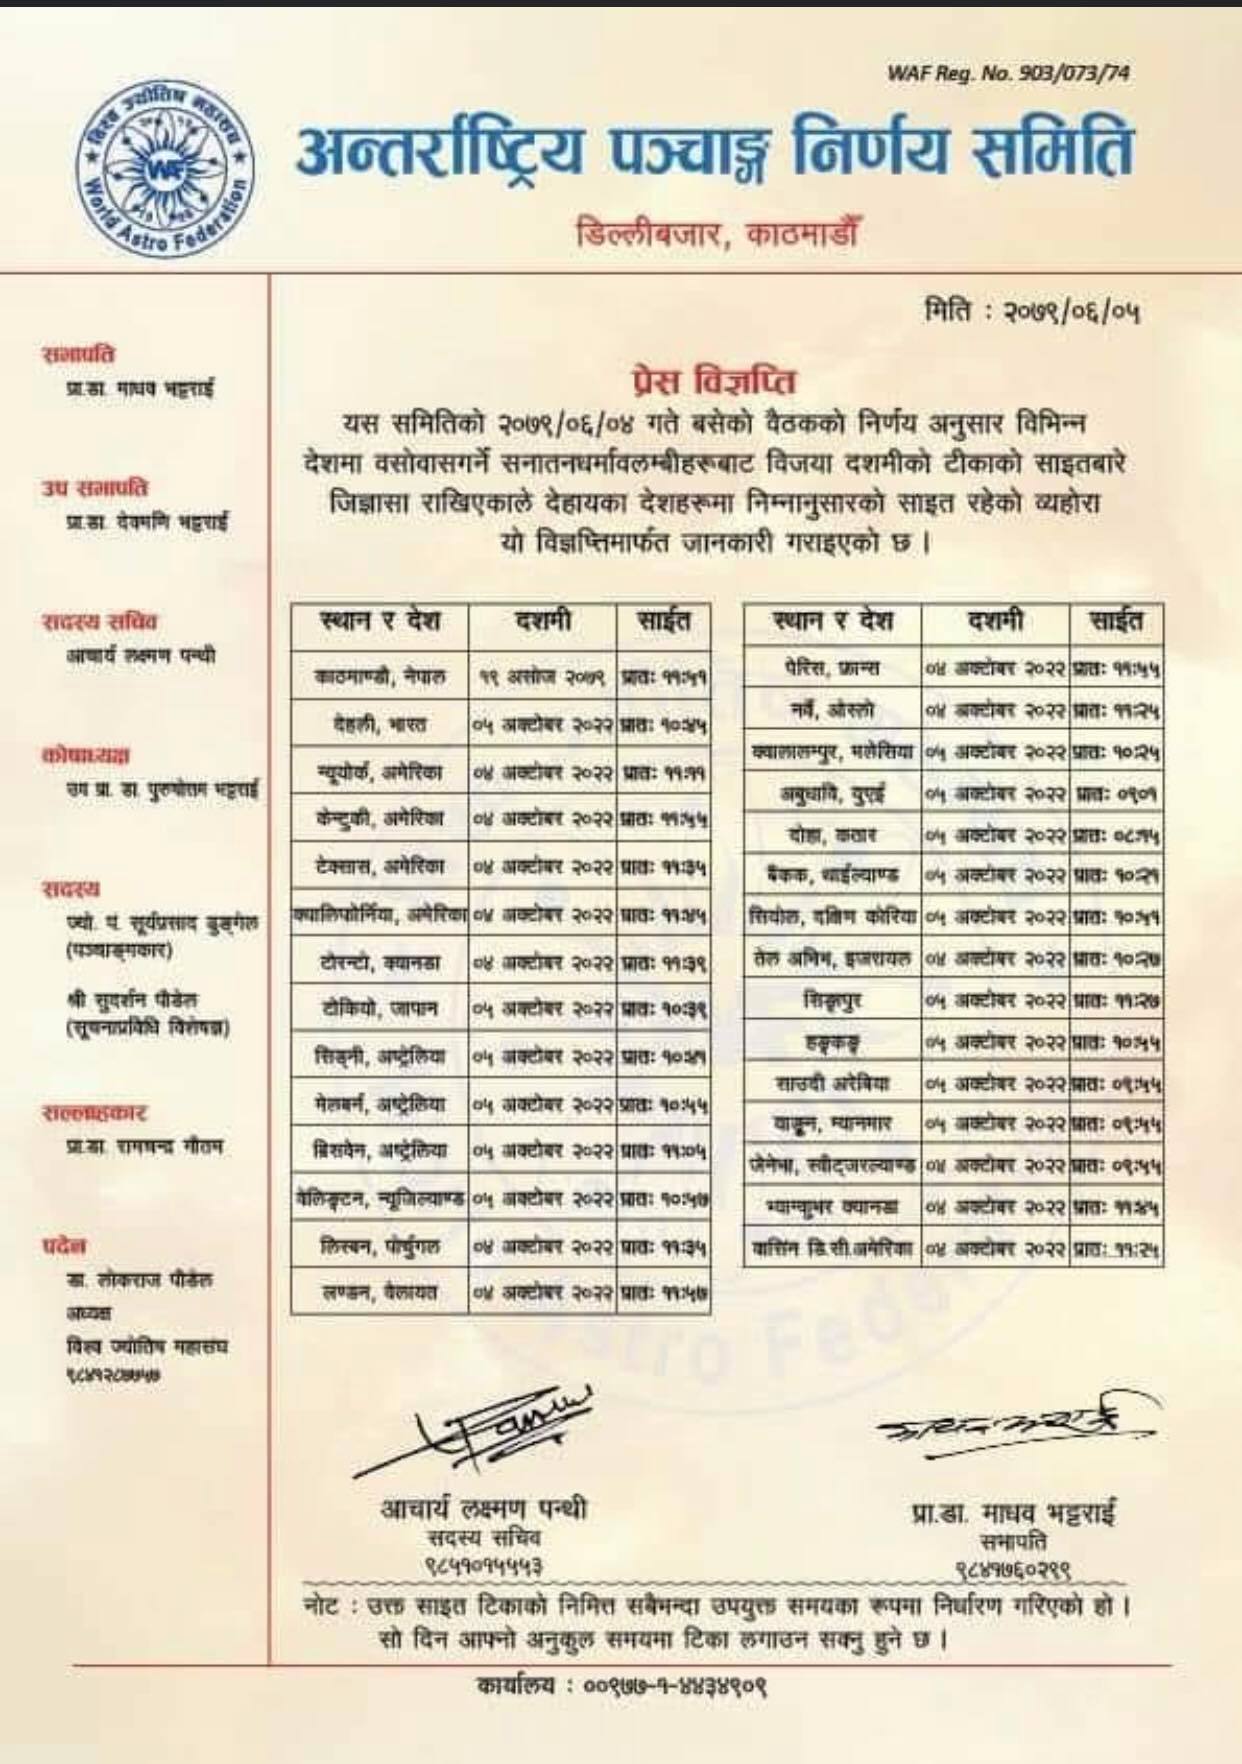 WAF Reg. No. 903/073/74
विश्व ज्योतिष महासंघ
WAF
World Astro Federation
अन्तर्राष्ट्रिय पञ्चाङ्ग निर्णय समिति
डिल्लीबजार, काठमाडौँ
मिति : २०७९/०६/०५
सभापति
प्रा.डा. माधव भट्टराई
उप सभापति
प्रा.डा. देवमणि भट्टराई
सदस्य सचिव
आचार्य लक्ष्मण पन्थी
कोषाध्यक्ष
उप प्रा. डा. पुरुषोत्तम भट्टराई
सदस्य
ज्यो. पं. सूर्यप्रसाद ढुङ्गेल
(पञ्चाङ्गकार)
श्री सुदर्शन पौडेल
(सूचनाप्रविधि विशेषज्ञ)
सल्लाहकार
प्रा.डा. रामचन्द्र गौतम
पदेन
डा. लोकराज पौडेल
अध्यक्ष
विश्व ज्योतिष महासंघ
९८४१२८७७५७
प्रेस विज्ञप्ति
यस समितिको २०७९/०६/०४ गते बसेको वैठकको निर्णय अनुसार विभिन्न
देशमा वसोवासगर्ने सनातनधर्मावलम्बीहरूबाट विजया दशमीको टीकाको साइतबारे
जिज्ञासा राखिएकाले देहायका देशहरूमा निम्नानुसारको साइत रहेको व्यहोरा
यो विज्ञप्तिमार्फत जानकारी गराइएको छ ।
स्थान र देश दशमी साईत
काठमाण्डौ, नेपाल १९ असोज २०७९ प्रातः ११:५१
देहली, भारत ०५ अक्टोबर २०२२ प्रातः १०:४५
न्यूयोर्क, अमेरिका ०४ अक्टोबर २०२२ प्रातः ११:११
केन्टुकी, अमेरिका ०४ अक्टोबर २०२२ प्रातः ११:५५
टेक्सास, अमेरिका ०४ अक्टोबर २०२२ प्रातः ११:३५
क्यालिफोर्निया, अमेरिका ०४ अक्टोबर २०२२ प्रातः ११:४५
टोरन्टो, क्यानडा ०४ अक्टोबर २०२२ प्रातः ११:३९
टोकियो, जापान ०५ अक्टोबर २०२२ प्रातः १०:३९
सिड्नी, अष्ट्रेलिया ०५ अक्टोबर २०२२ प्रातः १०:४१
मेलबर्न, अष्ट्रेलिया ०५ अक्टोबर २०२२ प्रातः १०:५५
ब्रिसवेन, अष्ट्रेलिया ०५ अक्टोबर २०२२ प्रातः ११:०५
वेलिङ्गटन, न्यूजिल्याण्ड ०५ अक्टोबर २०२२ प्रातः १०:५७
लिस्बन, पोर्चुगल ०४ अक्टोबर २०२२ प्रातः ११:३५
लण्डन, वेलायत ०४ अक्टोबर २०२२ प्रातः ११:५७
स्थान र देश दशमी साईत
पेरिस, फ्रान्स ०४ अक्टोबर २०२२ प्रातः ११:५५
नर्वे, ओस्लो ०४ अक्टोबर २०२२ प्रातः ११:२५
क्वालालम्पुर, मलेसिया ०५ अक्टोबर २०२२ प्रातः १०:२५
अबुधावि, युएई ०५ अक्टोबर २०२२ प्रातः ०९०१
दोहा, कतार ०५ अक्टोबर २०२२ प्रातः ०८:१५
बैंकक, थाईल्याण्ड ०५ अक्टोबर २०२२ प्रातः १०:२१
सियोल, दक्षिण कोरिया ०५ अक्टोबर २०२२ प्रातः १०:५१
तेल अभिभ, इजरायल ०४ अक्टोबर २०२२ प्रातः १०:२७
सिङ्गापुर ०५ अक्टोबर २०२२ प्रातः ११:२७
हङ्कङ्ग ०५ अक्टोबर २०२२ प्रातः १०:५५
साउदी अरेबिया ०५ अक्टोबर २०२२ प्रातः ०९:५५
याङ्गुन, म्यानमार ०५ अक्टोबर २०२२ प्रातः ०९:५५
जेनेभा, स्वीट्जरल्याण्ड ०४ अक्टोबर २०२२ प्रातः ०९:५५
भ्यान्कुभर क्यानडा ०४ अक्टोबर २०२२ प्रातः ११:४५
वासिंन डि.सी.अमेरिका ०४ अक्टोबर २०२२ प्रातः ११:२५
आचार्य लक्ष्मण पन्थी
सदस्य सचिव
९८५१०१५५५३
प्रा.डा. माधव भट्टराई
सभापति
९८४१७६०२९९
नोट : उक्त साइत टिकाको निमित्त सबैभन्दा उपयुक्त समयका रूपमा निर्धारण गरिएको हो ।
सो दिन आफ्नो अनुकुल समयमा टिका लगाउन सक्नु हुने छ ।
कार्यालय : ००९७७-१-४४३४९०९